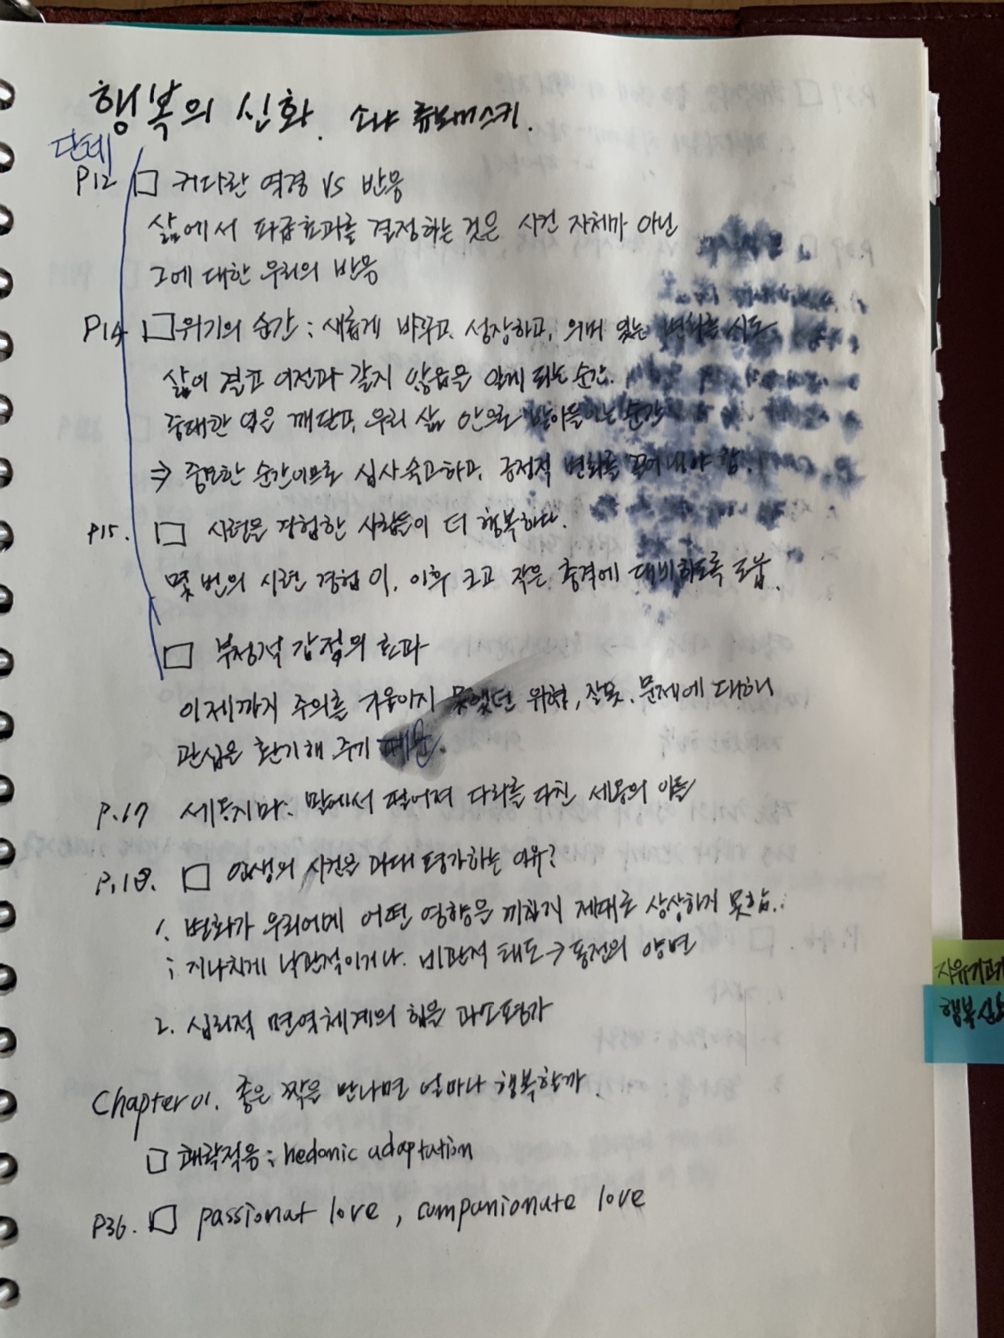 행복의 신화. 소냐 류보머스키.
단계
P12 □ 커다란 역경 VS 반응
삶에서 파급효과를 결정하는 것은 사건 자체가 아닌
그에 대한 우리의 반응
P14 □ 위기의 순간 : 새롭게 바꾸고, 성장하고, 의미 있는 변화를 시도
삶이 결코 이전과 같지 않음은 알게 되는 순간.
중대한 일은 깨닫고, 우리 삶 안으로 받아들이는 순간
⇒ 중요한 순간이므로 심사숙고하고, 긍정적 변화를 끌어내야 함.
P15. □ 시련을 경험한 사람들이 더 행복하다.
몇 번의 시련 경험이, 이후 크고 작은 충격에 대비하도록 도움.
□ 부정적 감정의 효과
이제까지 주의를 기울이지 못했던 위험, 잘못, 문제에 대해
관심을 환기해 주기 때문.
P.17 새옹지마. 말에서 떨어져 다리를 다친 새옹의 아들
P.18. □ 인생의 사건을 과대 평가하는 이유?
1. 변화가 우리에게 어떤 영향을 끼칠지 제대로 상상하지 못함.
; 지나치게 낙관적이거나. 비관적 태도 → 동전의 양면
2. 심리적 면역체계의 힘을 과소평가
Chapter 01. 좋은 짝을 만나면 얼마나 행복할까.
□ 쾌락적응 : hedonic adaptation
P36. □ passionat love, companionate love
자유
행복